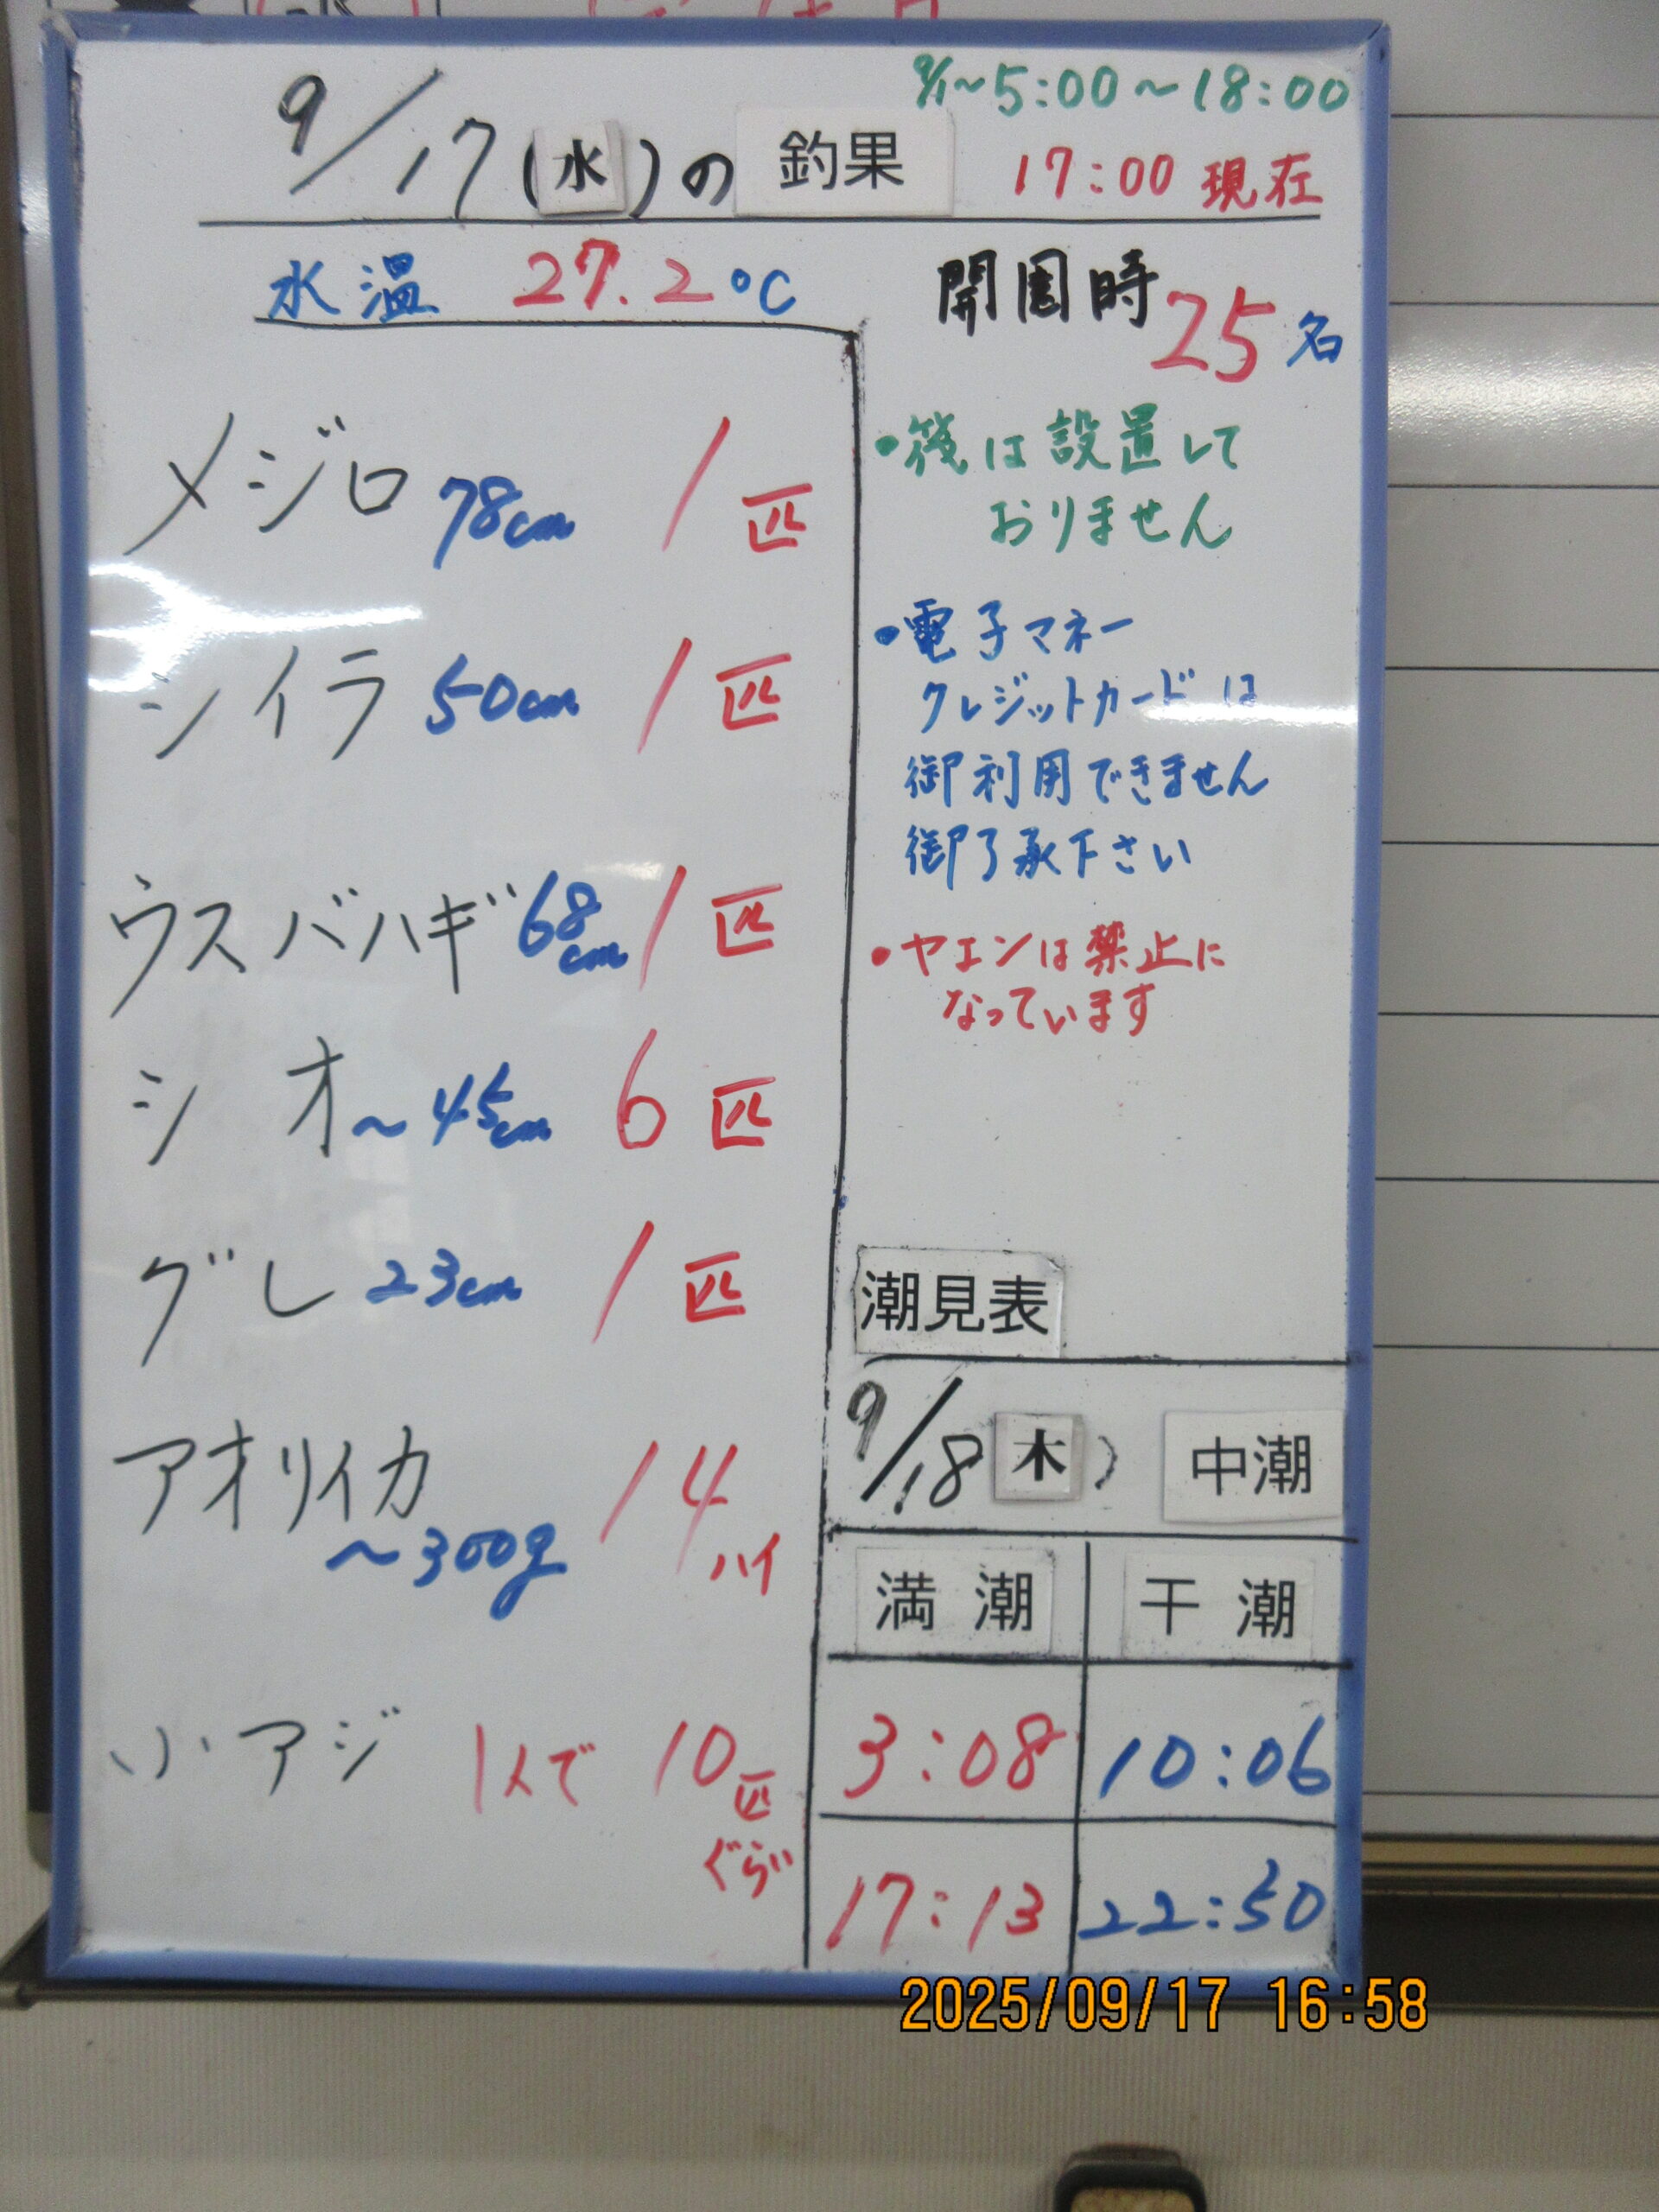 9/1～5:00～18:00
9/17(水)の釣果
17:00 現在
水温 27.2℃
開園時 25名
メジロ 78cm 1匹
シイラ 50cm 1匹
ウスバハギ 68cm 1匹
シオ ～45cm 6匹
グレ 23cm 1匹
アオリイカ ～300g 14ハイ
小アジ 1人で 10匹
ぐらい
・筏は設置して
おりません
・電子マネー
クレジットカードは
御利用できません
御了承下さい
・ヤエンは禁止に
なっています
潮見表
9/18(木) 中潮
満潮 干潮
3:08 10:06
17:13 22:50
2025/09/17 16:58